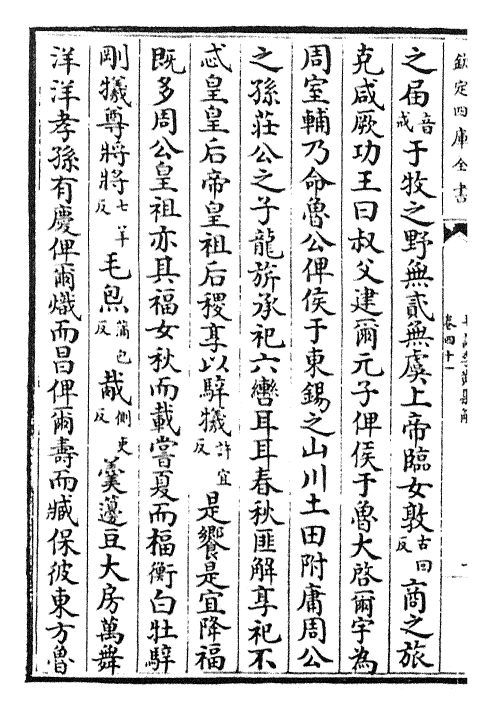 欽定四庫全書
卷四十一
之届音戒于牧之野無貳無虞上帝臨女敦古回反商之旅
克咸厥功王曰叔父建爾元子俾侯于魯大啓爾宇為
周室輔乃命魯公俾侯于東錫之山川土田附庸周公
之孫莊公之子龍旂承祀六轡耳耳春秋匪解享祀不
忒皇皇后帝皇祖后稷享以騂犧許宜反是饗是宜降福
既多周公皇祖亦其福女秋而載嘗夏而楅衡白牡騂
剛犧尊將將七羊反毛炰蒲包反胾側吏反羹籩豆大房萬舞
洋洋孝孫有慶俾爾熾而昌俾爾壽而臧保彼東方魯